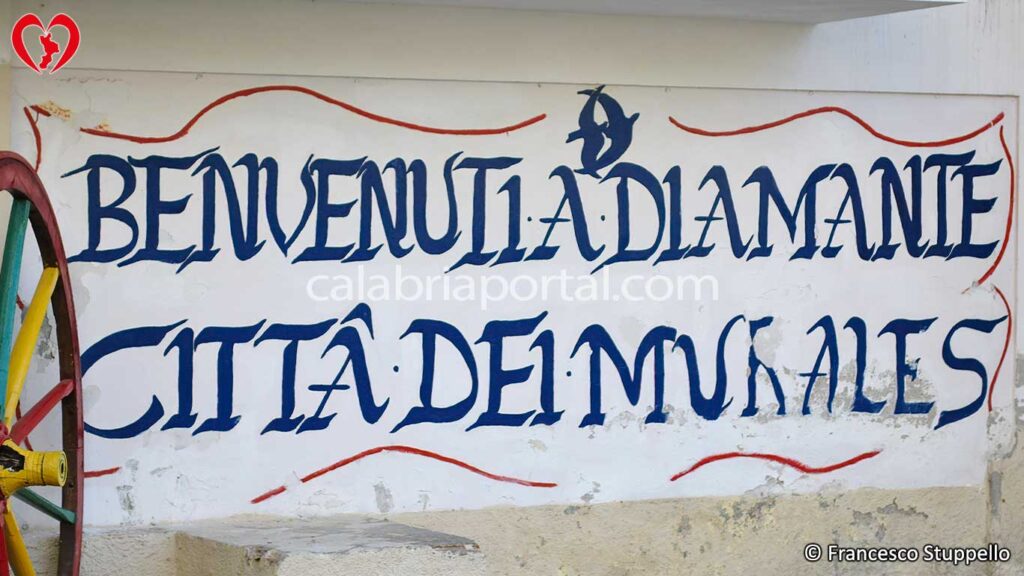 BENVENUTI·A·DIAMANTE
calabriaportal.com
CITTÂ·DEI·MURALES
© Francesco Stuppello